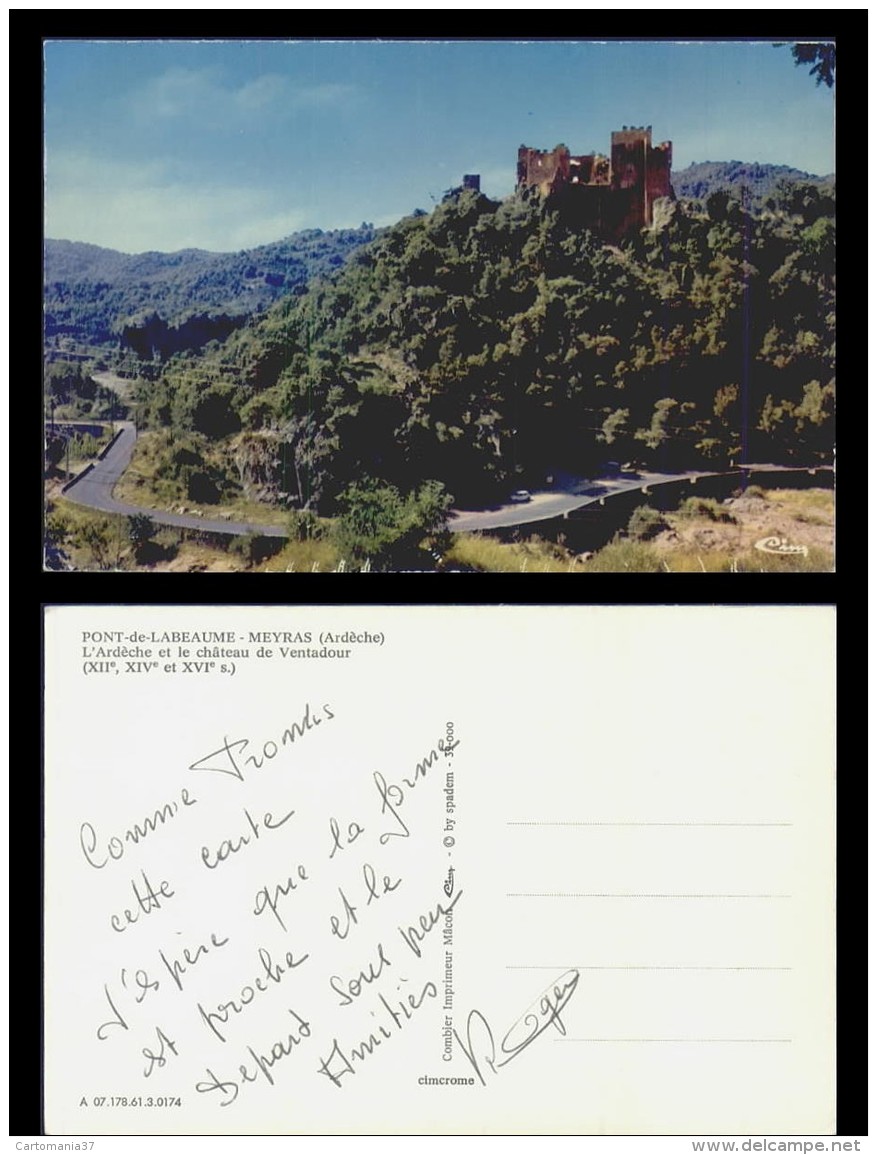 Cim
PONT-de-LABEAUME - MEYRAS (Ardèche)
L'Ardèche et le château de Ventadour
(XIIe, XIVe et XVIe s.)
Comme Promis
cette carte
J'espère que la forme
est proche et le
Depart sous peu
Amitiés
Roger
Combier Imprimeur Mâcon Cim - © by spadem - 39-000
cimcrome
A 07.178.61.3.0174
Cartomania37
www.delcampe.net